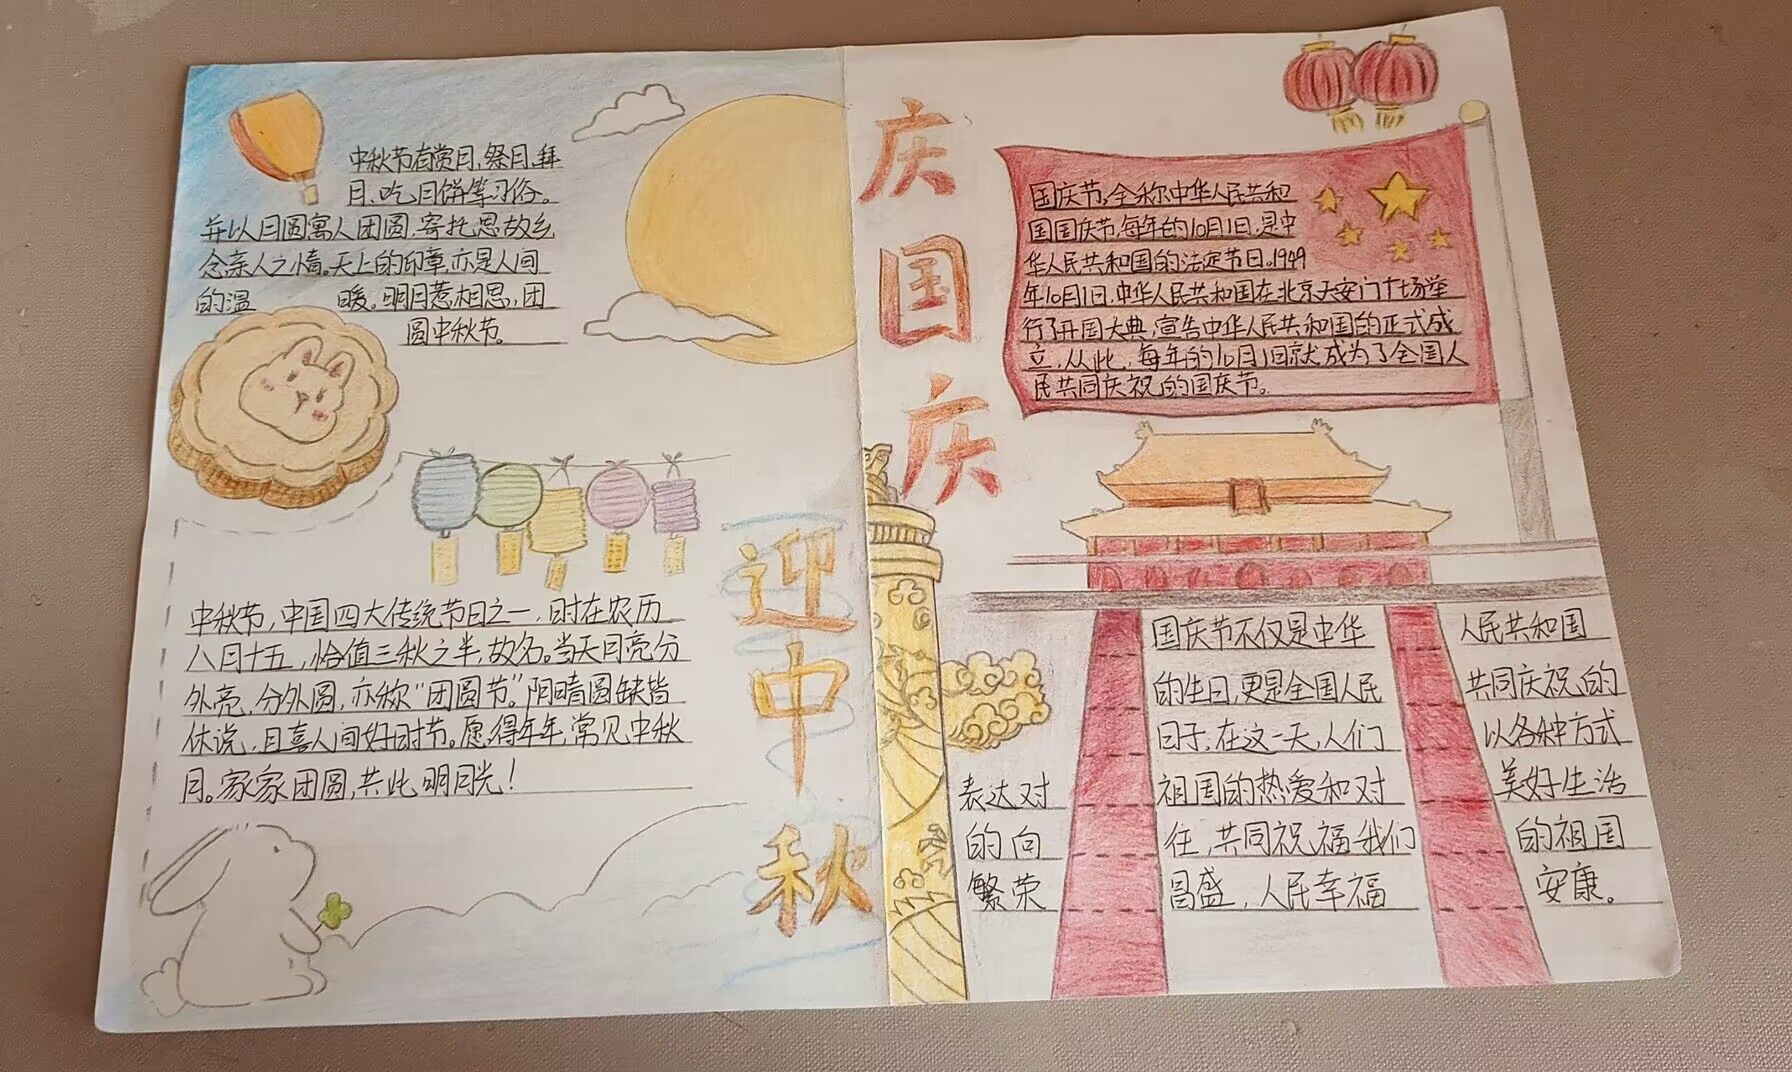 中秋节有赏月，祭月，拜
月、吃月饼等习俗。
并以月圆寓人团圆，寄托思故乡
念亲人之情。天上的印章，亦是人间
的温 暖。明月惹相思，团
圆中秋节。
中秋节，中国四大传统节日之一，时在农历
八月十五，恰值三秋之半，故名。当天月亮分
外亮，分外圆，亦称“团圆节”。阴晴圆缺皆
休说，且喜人间好时节。愿，得年年，常见中秋
月。家家团圆，共此明月光！
迎
中
秋
庆
国
庆
国庆节，全称中华人民共和
国国庆节，每年的10月1日，是中
华人民共和国的法定节日。1949
年10月1日，中华人民共和国在北京天安门广场举
行了开国大典，宣告中华人民共和国的正式成
立，从此，每年的10月1日就成为了全国人
民共同庆祝的国庆节。
国庆节不仅是中华 人民共和国
的生日，更是全国人民 共同庆祝的
日子，在这一天，人们 以各种方式
表达对 祖国的热爱和对 美好生活
的向 往，共同祝福我们 的祖国
繁荣 昌盛，人民幸福 安康。